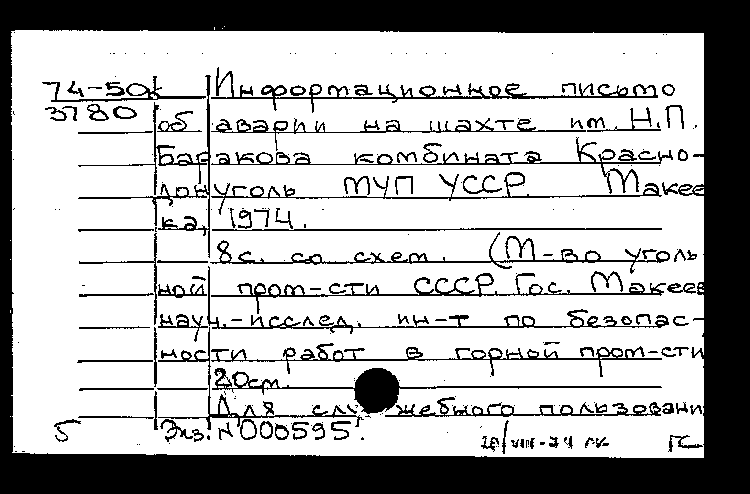 74-50к Информационное письмо
3780 об аварии на шахте им. Н.П.
Баракова комбината Красно-
донуголь МУП УССР. Макее
ка, 1974.
8с. со схем. (М-во уголь
ной пром-сти СССР. Гос. Макеев
науч.-исслед. ин-т по безопас-
ности работ в горной пром-сти
20см.
Для служебного пользовани
5 Экз. N 000595.
VIII-74 ГС